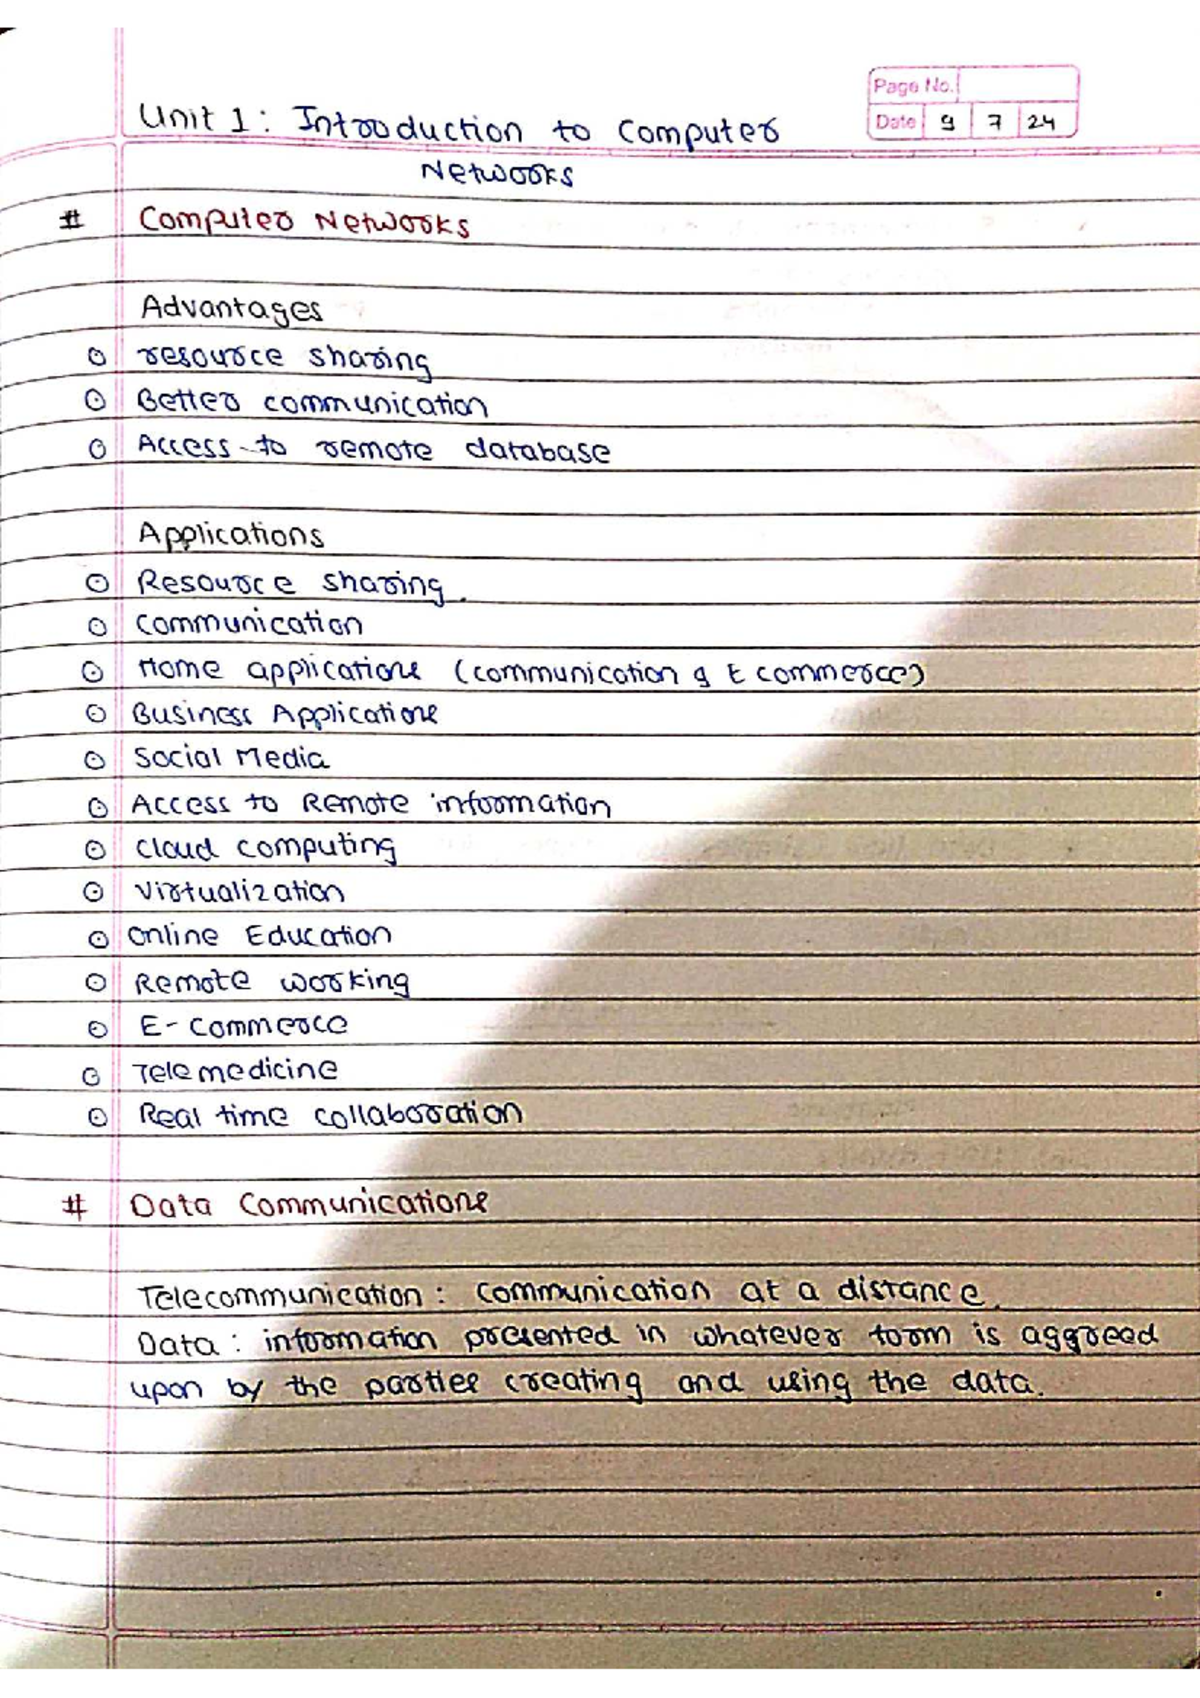 Page No.
Date 9 7 24
Unit 1: Introduction to Computer
Networks
# Computer Networks
Advantages
⊙ resource sharing
⊙ Better communication
⊙ Access to remote database
Applications
⊙ Resource sharing.
⊙ communication
⊙ Home applications (communication & E commerce)
⊙ Business Applications
⊙ Social Media
⊙ Access to Remote information
⊙ cloud computing
⊙ virtualization
⊙ online Education
⊙ Remote working
⊙ E-commerce
⊙ Telemedicine
⊙ Real time collaboration
# Data Communications
Telecommunication: communication at a distance.
Data: information presented in whatever form is aggreed
upon by the parties creating and using the data.